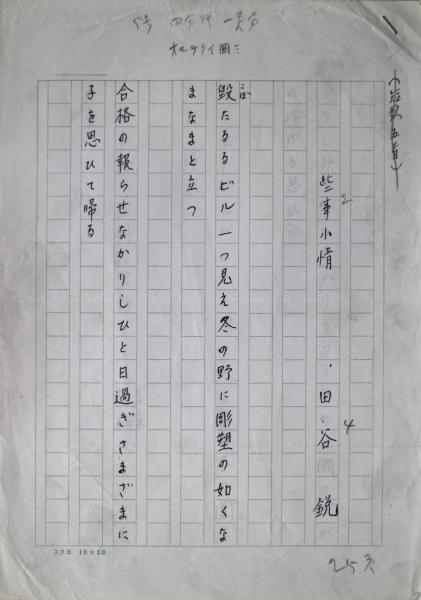 5号 四分アキ 一頁分
(短歌五首)
些事小情 2
田谷 鋭 4
毀たるるビル一つ見え冬の野に彫塑の如くな
こぼ
まなまと立つ
合格の報らせなかりしひと日過ぎさまざまに
子を思ひて帰る
25頁
コクヨ 10×20